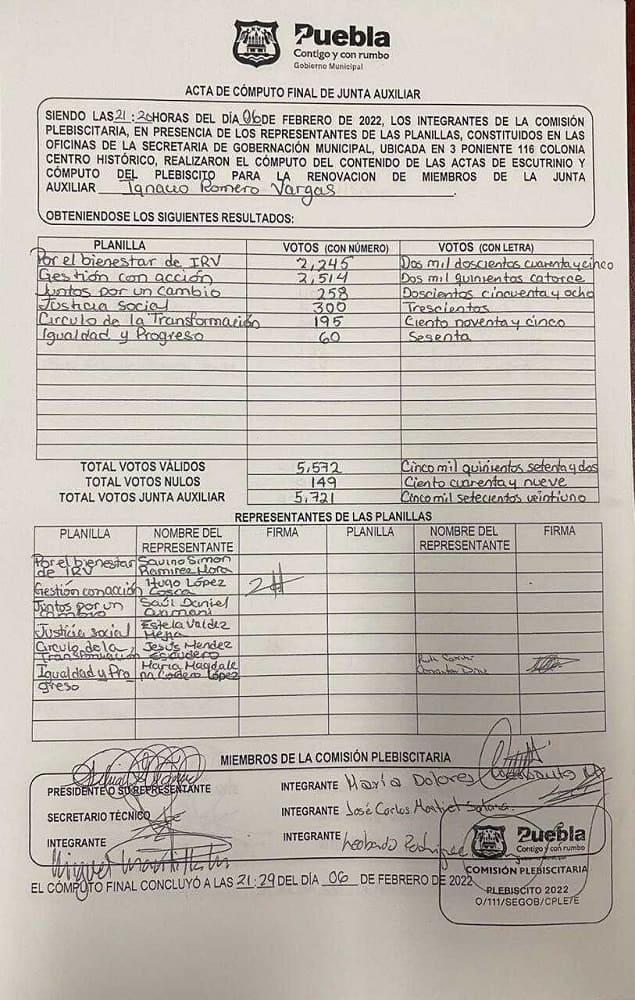 Puebla
Contigo y con rumbo
Gobierno Municipal
ACTA DE CÓMPUTO FINAL DE JUNTA AUXILIAR
SIENDO LAS 21:20 HORAS DEL DÍA 06 DE FEBRERO DE 2022, LOS INTEGRANTES DE LA COMISIÓN
PLEBISCITARIA, EN PRESENCIA DE LOS REPRESENTANTES DE LAS PLANILLAS, CONSTITUIDOS EN LAS
OFICINAS DE LA SECRETARIA DE GOBERNACIÓN MUNICIPAL, UBICADA EN 3 PONIENTE 116 COLONIA
CENTRO HISTÓRICO, REALIZARON EL CÓMPUTO DEL CONTENIDO DE LAS ACTAS DE ESCRUTINIO Y
CÓMPUTO DEL PLEBISCITO PARA LA RENOVACION DE MIEMBROS DE LA JUNTA
AUXILIAR Ignacio Romero Vargas.
OBTENIENDOSE LOS SIGUIENTES RESULTADOS:
PLANILLA VOTOS (CON NÚMERO) VOTOS (CON LETRA)
Por el bienestar de IRV 2,245 Dos mil doscientos cuarenta y cinco
Gestión con acción 2,514 Dos mil quinientos catorce
Juntos por un cambio 258 Doscientos cincuenta y ocho
Justicia social 300 Trescientos
Circulo de la Transformación 195 Ciento noventa y cinco
Igualdad y Progreso 60 Sesenta
TOTAL VOTOS VÁLIDOS 5,572 Cinco mil quinientos setenta y dos
TOTAL VOTOS NULOS 149 Ciento cuarenta y nueve
TOTAL VOTOS JUNTA AUXILIAR 5,721 Cinco mil setecientos veintiuno
REPRESENTANTES DE LAS PLANILLAS
PLANILLA NOMBRE DEL REPRESENTANTE FIRMA PLANILLA NOMBRE DEL REPRESENTANTE FIRMA
Por el bienestar Savino Simon
de IRV Ramirez Mora
Gestión con acción Hugo López
Juntos por un Saúl Daniel
cambio
Justicia social Estela Valdez
Mejia
Circulo de la Jesús Mendez
Transformación Escudero
Igualdad y Pro Maria Magdale
greso na Cordero López
MIEMBROS DE LA COMISIÓN PLEBISCITARIA
PRESIDENTE O SU REPRESENTANTE INTEGRANTE María Dolores
SECRETARIO TÉCNICO INTEGRANTE José Carlos
INTEGRANTE INTEGRANTE Leobardo Rodriguez
Miguel
Puebla
Contigo y con rumbo
COMISIÓN PLEBISCITARIA
PLEBISCITO 2022
O/111/SEGOB/CPLE7E
EL CÓMPUTO FINAL CONCLUYÓ A LAS 21:29 DEL DÍA 06 DE FEBRERO DE 2022